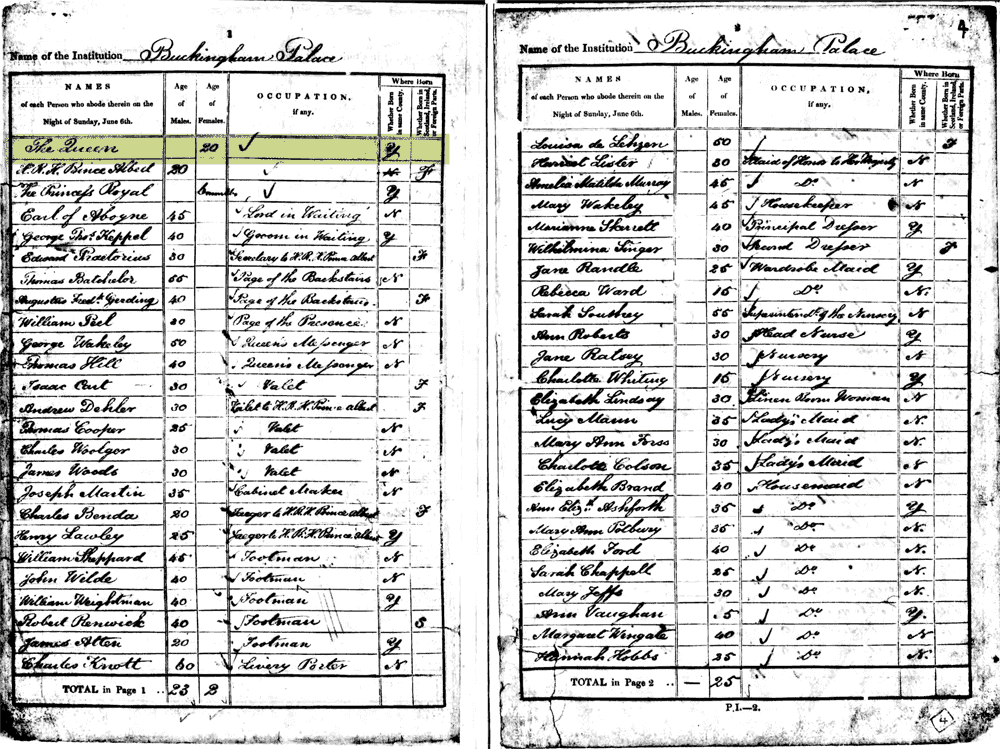 1
Name of the Institution Buckingham Palace
NAMES of each Person who abode therein on the Night of Sunday, June 6th. Age of Males. Age of Females. OCCUPATION, if any. Where Born Whether Born in same County. Whether Born in Scotland, Ireland, or Foreign Parts.
The Queen 20 ✓ Y
H.R.H. Prince Albert 20 ✓ N F
The Princess Royal ✓ Y
Earl of Aboyne 45 Lord in Waiting N
George Thos. Keppel 40 Groom in Waiting Y
Edward Praetorius 30 Secretary to H.R.H. Prince Albert F
Thomas Batchelor 55 Page of the Backstairs N
Augustus Fredk. Gerding 40 Page of the Backstairs F
William Peel 20 Page of the Presence N
George Wakeley 50 Queen's Messenger N
Thomas Hill 40 Queen's Messenger N
Isaac Cart 30 Valet F
Andrew Dehler 30 Valet to H.R.H. Prince Albert F
Thomas Cooper 25 Valet N
Charles Woolger 30 Valet N
James Woods 30 Valet N
Joseph Martin 35 Cabinet Maker N
Charles Benda 20 Jaeger to H.R.H. Prince Albert F
Henry Lawley 25 Jaeger to H.R.H. Prince Albert Y
William Sheppard 45 Footman N
John Wilde 40 Footman N
William Weightman 40 Footman Y
Robert Renwick 40 Footman S
James Alten 20 Footman Y
Charles Knott Livery Porter N
TOTAL in Page 1 .. 23 2
2
4
Name of the Institution Buckingham Palace
NAMES of each Person who abode therein on the Night of Sunday, June 6th. Age of Males. Age of Females. OCCUPATION, if any. Where Born Whether Born in same County. Whether Born in Scotland, Ireland, or Foreign Parts.
Louisa de Lehzen 50 ✓ F
Harriet Lister 30 Maid of Honor to Her Majesty N
Amelia Matilda Murray 45 Do N
Mary Wakeley 45 Housekeeper N
Marianne Skerrett 40 Principal Dresser Y
Wilhelmina Singer 30 Second Dresser F
Jane Randle 25 Wardrobe Maid Y
Rebecca Ward 15 Do N
Sarah Southey 55 Superintendt. of the Nursery N
Ann Roberts 30 Head Nurse Y
Jane Ratsey 30 Nursery N
Charlotte Whiting 15 Nursery Y
Elizabeth Lindsay 30 Linen Woman N
Lucy Mann 35 Lady's Maid N
Mary Ann Foss 30 Lady's Maid N
Charlotte Colson 35 Lady's Maid N
Elizabeth Brand 40 Housemaid N
Ann Elizth. Ashforth 35 Do Y
Mary Ann Polbury 35 Do N
Elizabeth Ford 40 Do N
Sarah Chappell 25 Do N
Mary Jeffs 30 Do N
Ann Vaughan 5 Do Y
Margaret Wingate 40 Do N
Hannah Hobbs 25 Do N
TOTAL in Page 2 .. — 25
P.I.—2.
4